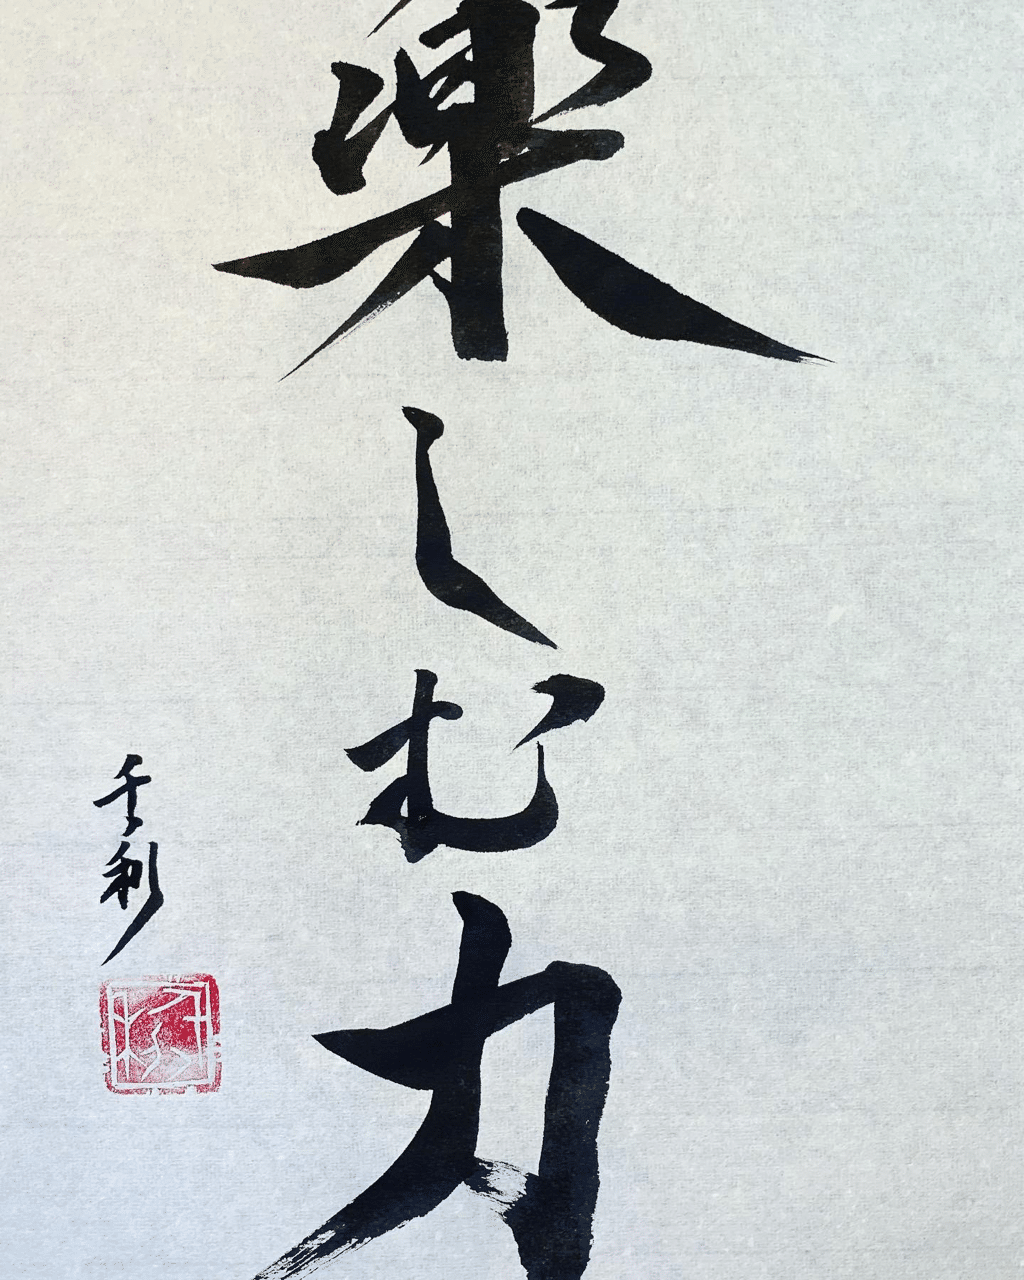 楽しむ力
千利